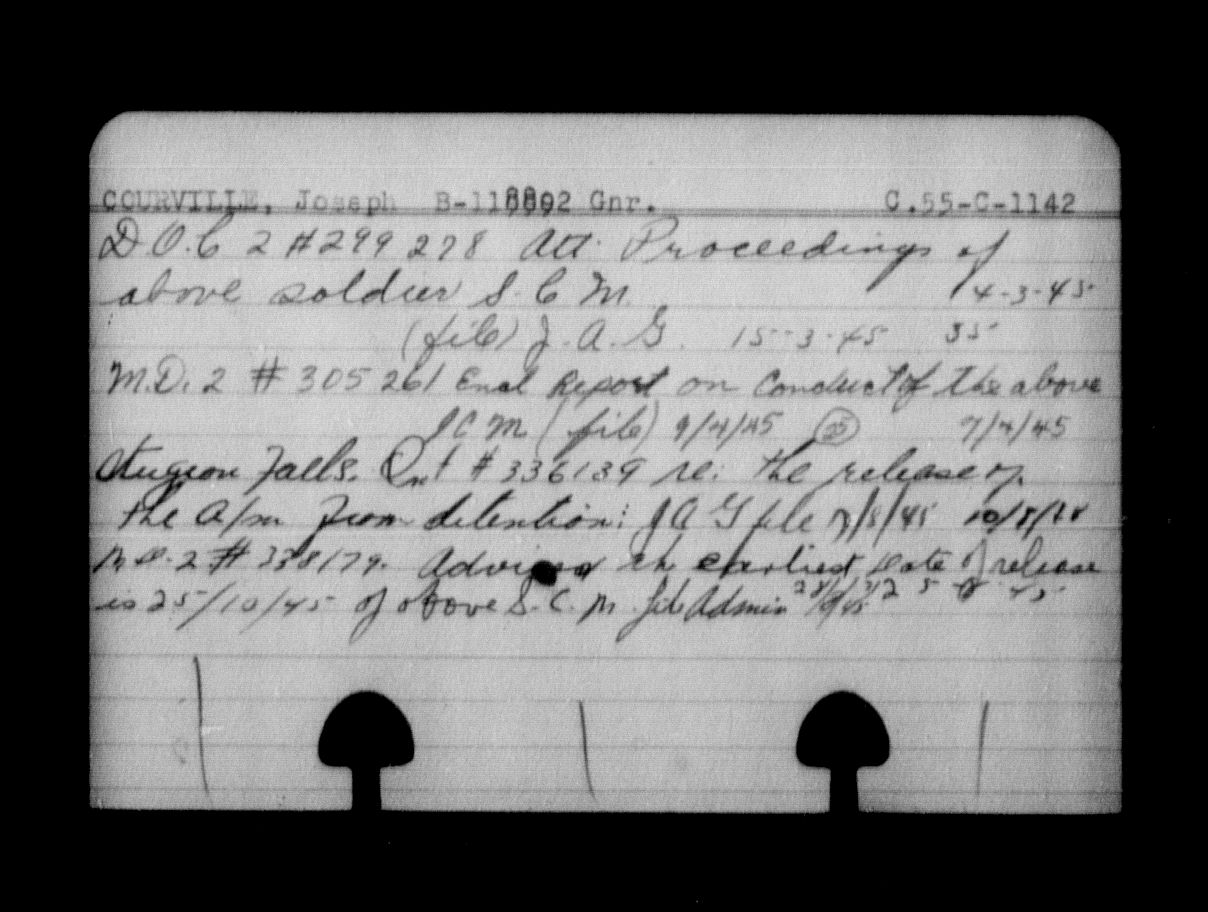 COURVILLE, Joseph B-118892 Gnr. C.55-C-1142
D.O.C 2 #299 278 Att. Proceedings of
above soldier S.C.M. 14-3-45
(file) J.A.G. 15-3-45 35
M.D. 2 # 305 261 Encl Report on Conduct of the above
SCM (file) 9/4/45 7/4/45
Sturgeon Falls. Ont # 336139 re: the release of
the a/m from detention: JAG file /8/45 10/8/45
M.D. 2 # 338179. Advising the earliest date of release
is 25/10/45 of above S.C.M. file Admin